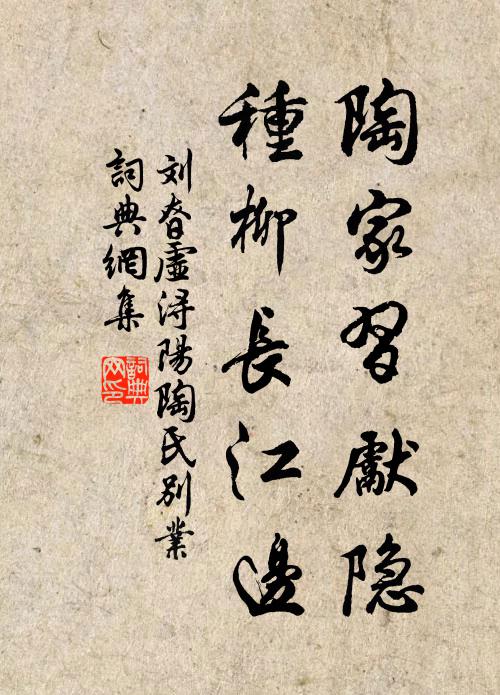 陶家習獻隐
種柳長江邊
刘昚虛浔陽陶氏别業
詞典網集
詞典
网印